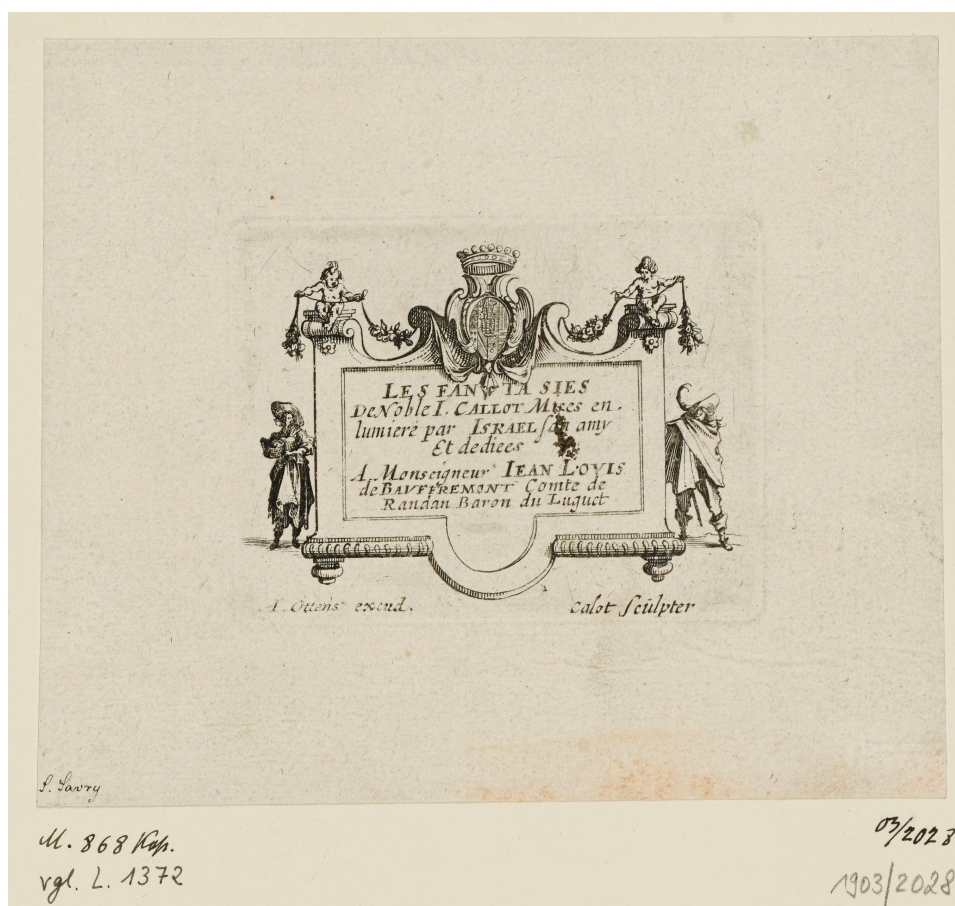 LES FANTASIES
De Noble I. CALLOT Mises en
lumiere par ISRAEL son amy
Et dediees
A Monseigneur IEAN LOVIS
de BAVFFREMONT Comte de
Randan Baron du Luguet
I. Ottens excud.
Calot Sculpter
S. Savry
M. 868 Kop.
vgl. L. 1372
03/2028
1903/2028